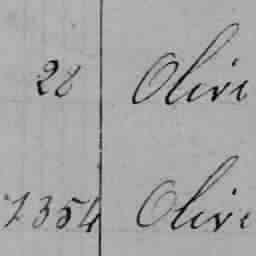 28 Olive
1354 Olive